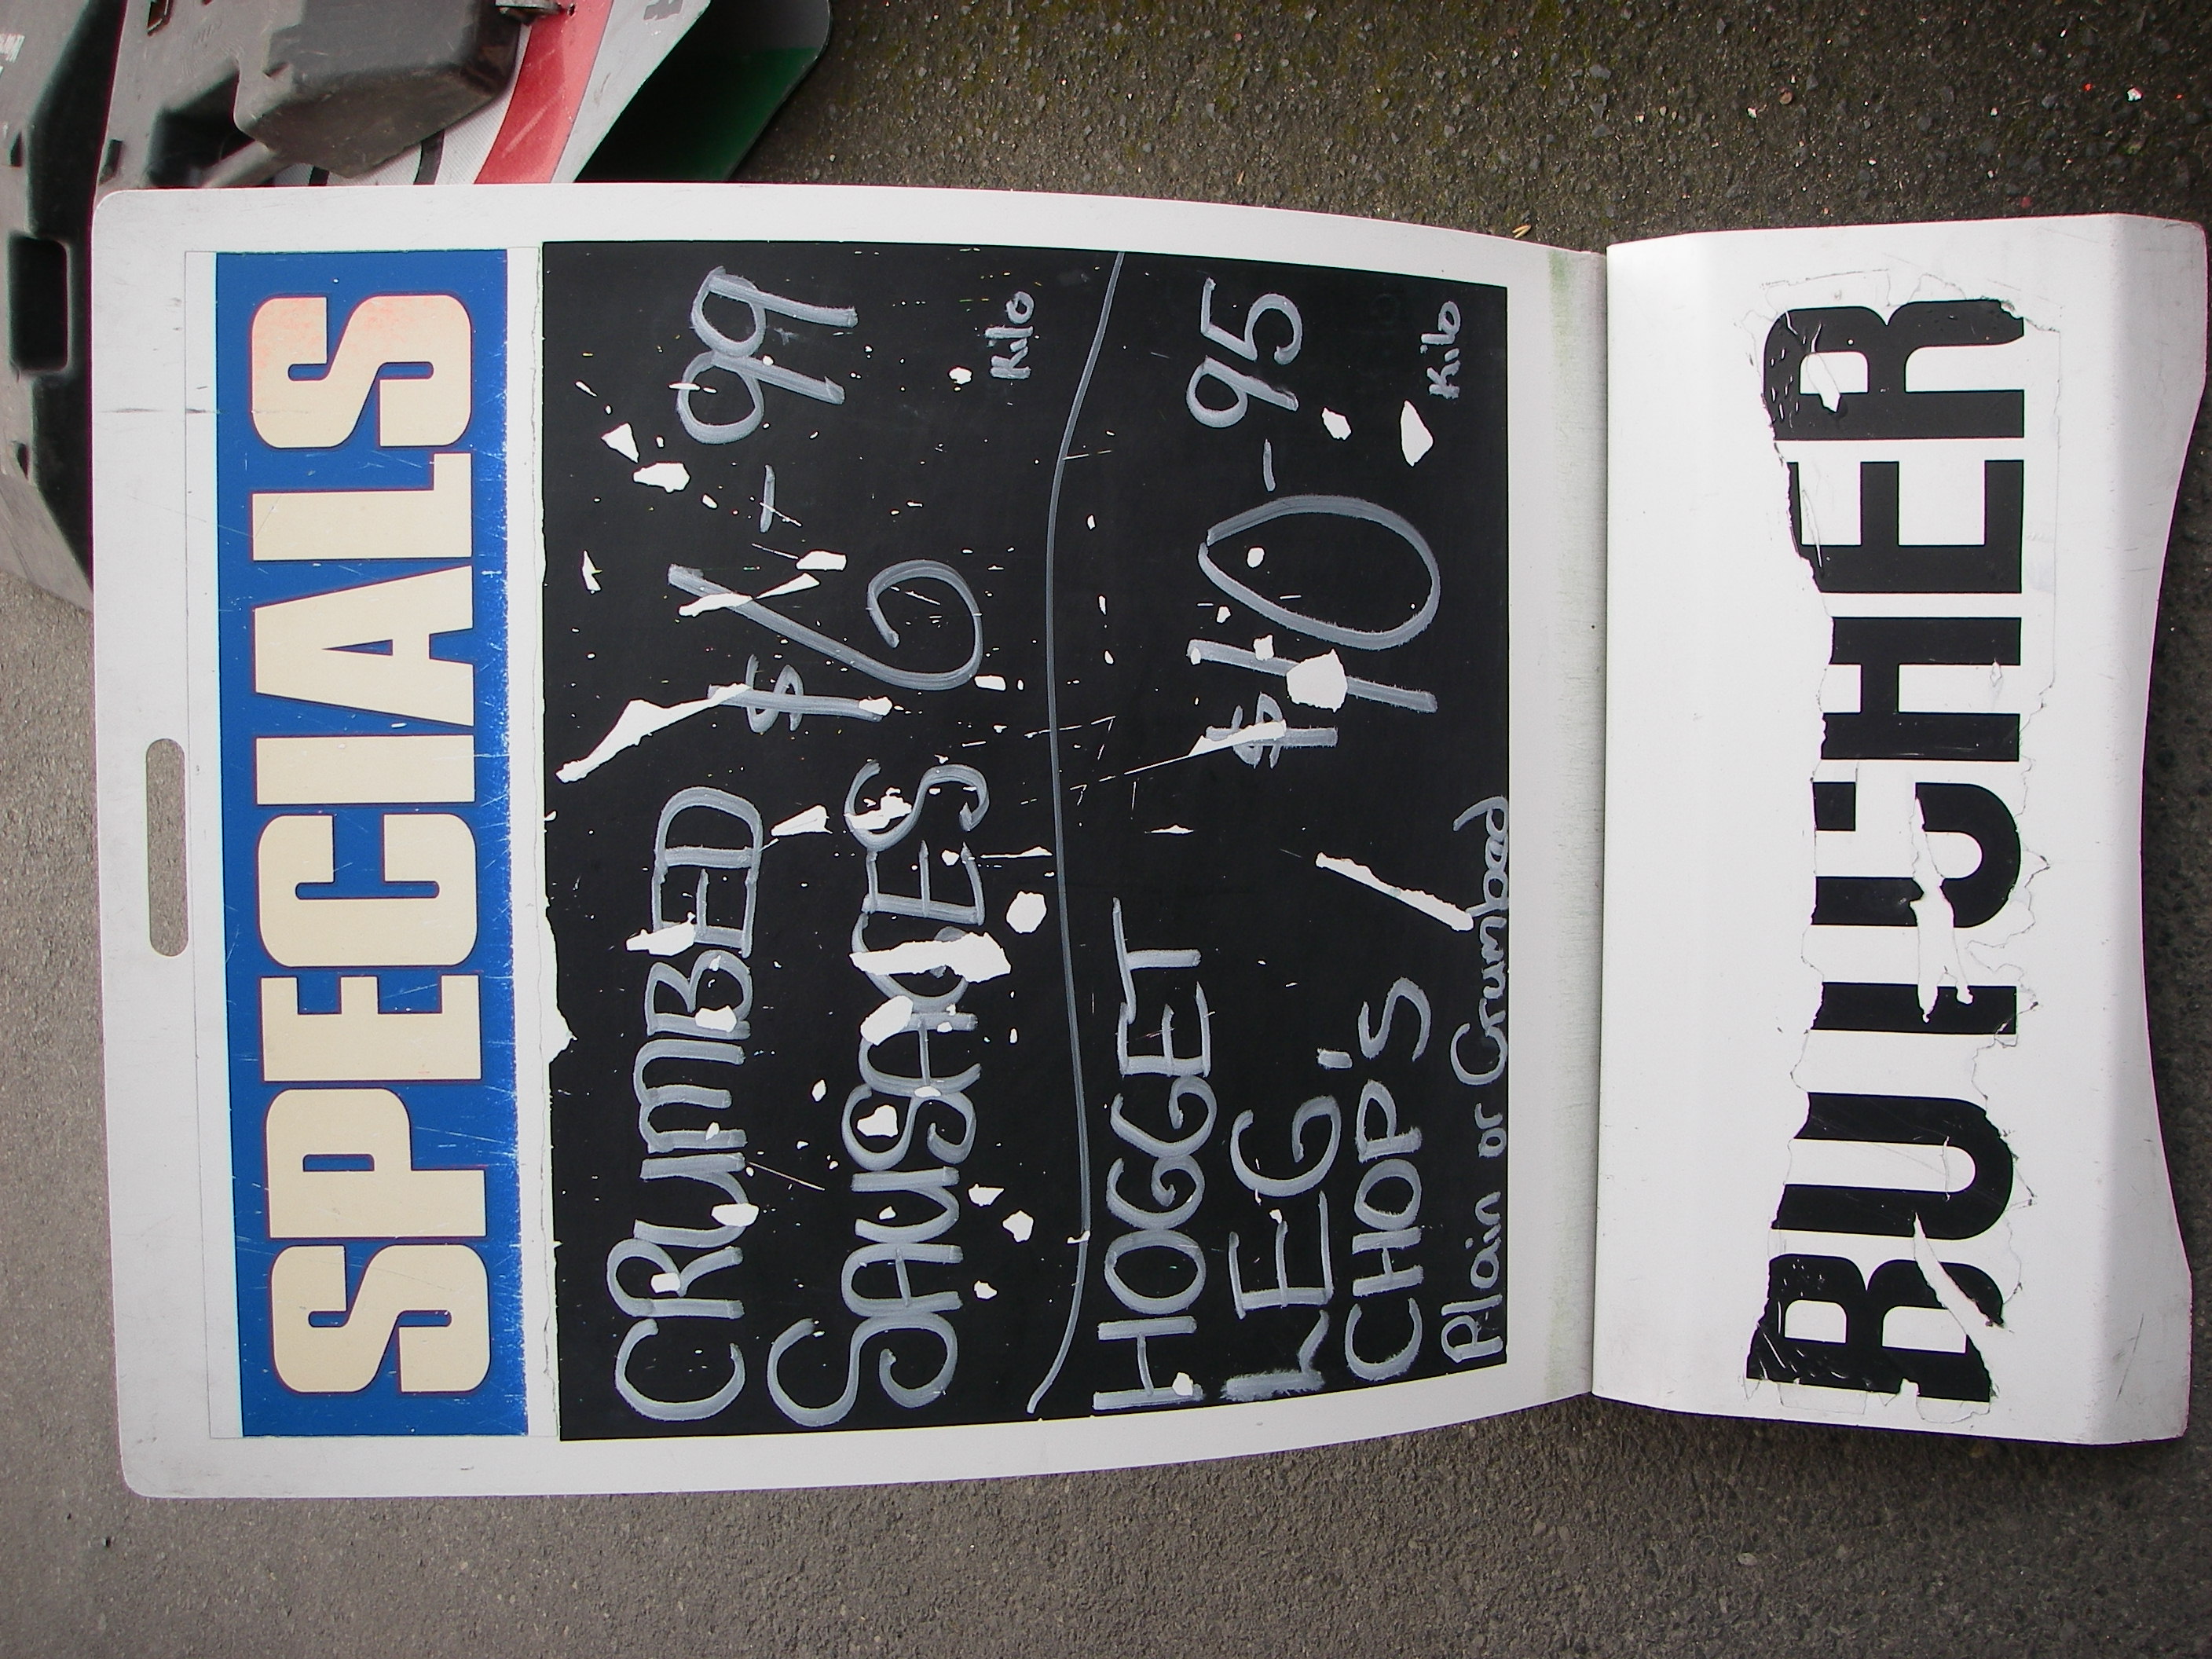 SPECIALS
CRUMBED
SAUSAGES
$6-99
Kilo
HOGGET
LEG
CHOP'S
$10-95
Kilo
Plain or Crumbad
BUTCHER